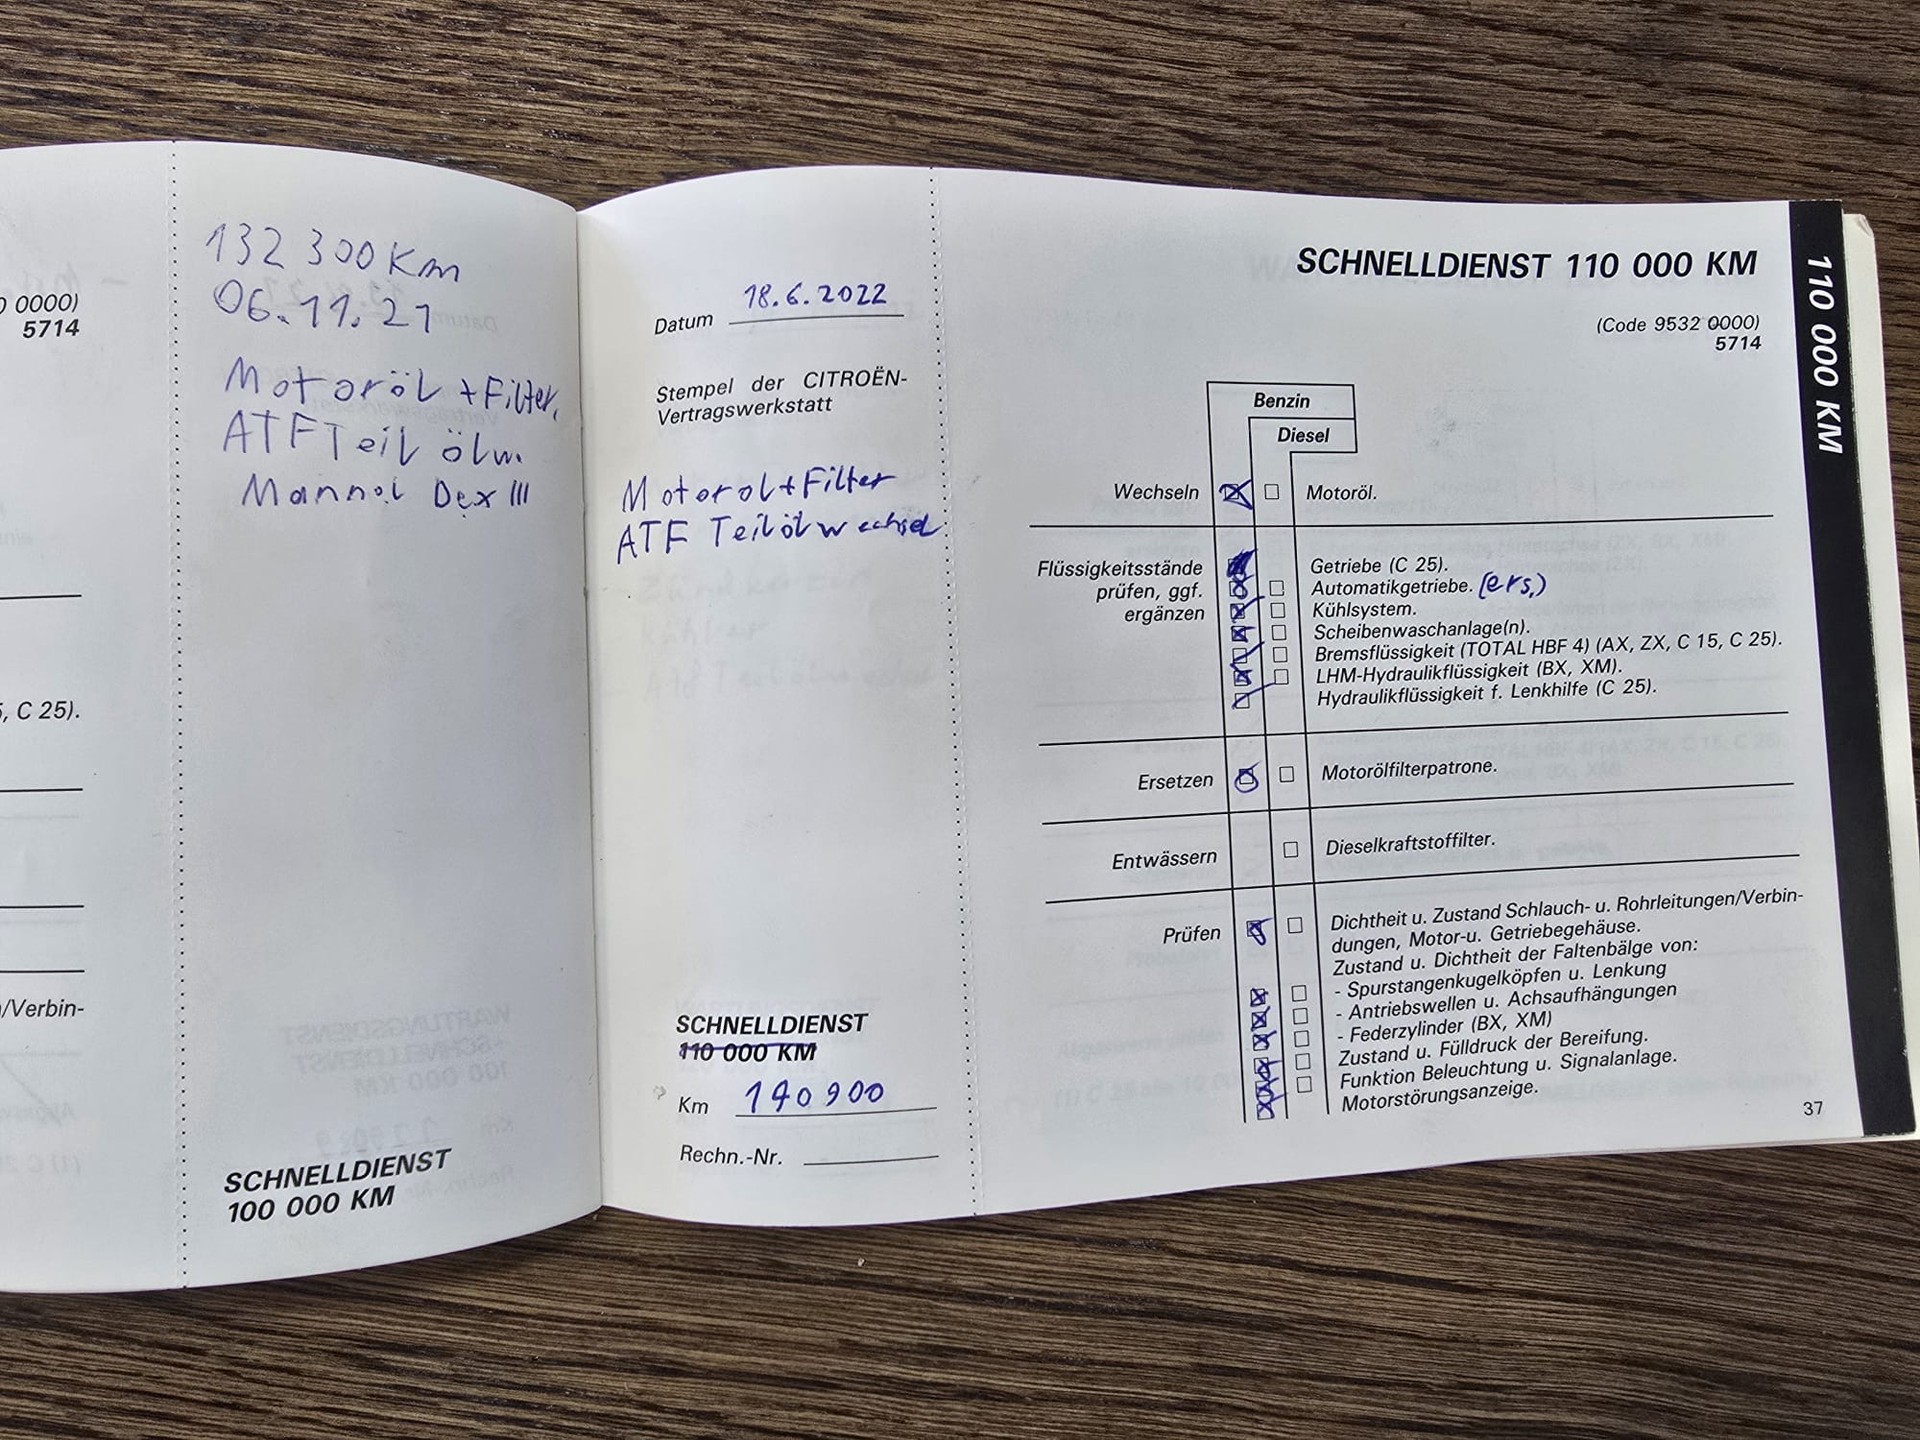 0 0000)
5714
, C 25).
n/Verbin-
132 300 Km
06.11.21
Motoröl + Filter,
ATF Teil ölw.
Mannol Dex III
SCHNELLDIENST
100 000 KM
Datum 18.6.2022
Stempel der CITROËN-
Vertragswerkstatt
Motorol + Filter
ATF Teilölwechsel
SCHNELLDIENST
110 000 KM
Km 140900
Rechn.-Nr.
SCHNELLDIENST 110 000 KM
(Code 9532 0000)
5714
Benzin
Diesel
Wechseln Motoröl.
Flüssigkeitsstände
prüfen, ggf.
ergänzen
Getriebe (C 25).
Automatikgetriebe. (ers.)
Kühlsystem.
Scheibenwaschanlage(n).
Bremsflüssigkeit (TOTAL HBF 4) (AX, ZX, C 15, C 25).
LHM-Hydraulikflüssigkeit (BX, XM).
Hydraulikflüssigkeit f. Lenkhilfe (C 25).
Ersetzen Motorölfilterpatrone.
Entwässern Dieselkraftstoffilter.
Prüfen Dichtheit u. Zustand Schlauch- u. Rohrleitungen/Verbin-
dungen, Motor-u. Getriebegehäuse.
Zustand u. Dichtheit der Faltenbälge von:
- Spurstangenkugelköpfen u. Lenkung
- Antriebswellen u. Achsaufhängungen
- Federzylinder (BX, XM)
Zustand u. Fülldruck der Bereifung.
Funktion Beleuchtung u. Signalanlage.
Motorstörungsanzeige.
37
110 000 KM